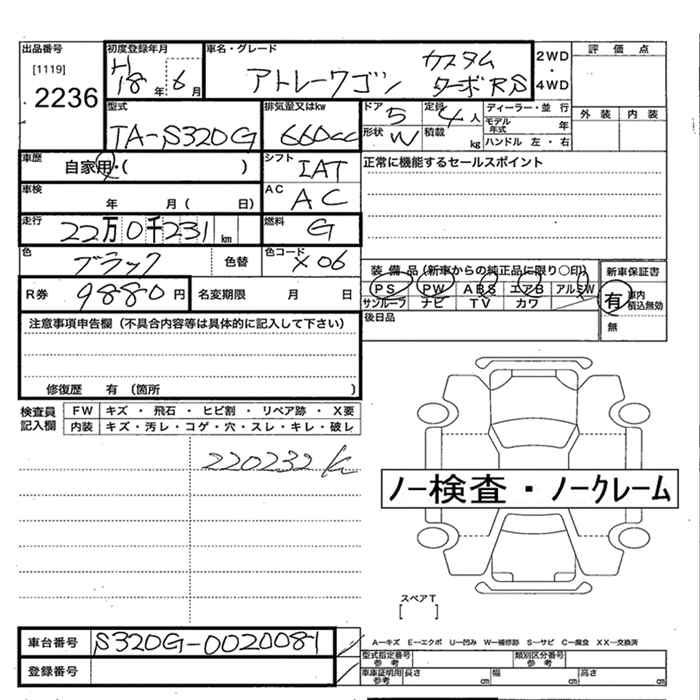 出品番号
[1119]
2236
初度登録年月
H18年 6月
車名・グレード
アトレーワゴン カスタム
ターボRS
2WD
・
4WD
評価点
外装 内装
型式
TA-S320G
排気量又はkw
660cc
ドア 5
形状 W
定員 4人
積載 kg
ディーラー・並行
モデル年式 年
ハンドル 左・右
車歴
自家用・( )
シフト
IAT
正常に機能するセールスポイント
車検
年 月( 日)
AC
AC
走行
22万0千231km
燃料
G
色
ブラック
色替
色コード
X06
装備品(新車からの純正品に限り○印)
PS PW ABS エアB アルミW
サンルーフ ナビ TV カワ
新車保証書
有 車内積込無効
無
R券 9880円
名変期限 月 日
後日品
注意事項申告欄(不具合内容等は具体的に記入して下さい)
修復歴 有(箇所 )
検査員記入欄
FW キズ・飛石・ヒビ割・リペア跡・X要
内装 キズ・汚レ・コゲ・穴・スレ・キレ・破レ
220232k
ノー検査・ノークレーム
スペアT
[ ]
車台番号 S320G-0020081
登録番号
A－キズ E－エクボ U－凹み W－補修跡 S－サビ C－腐食 XX－交換済
型式指定番号 参考
類別区分番号 参考
車庫証明用 参考 長さ cm 幅 cm 高さ cm